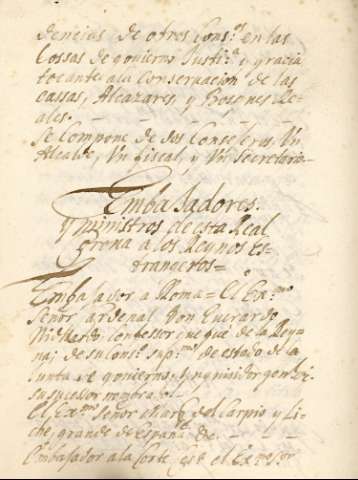 dencias de otros Cons.os en las
Cossas de govierno Justi.a y gracia
tocante a la Conservacion de las
cassas, Alcazares, y Bosques Re-
ales.
Se Compone de dos Consejeros, Un
Alcalde, Un fiscal, y Un Secretario
Embaxadores.
y ministros de esta Real
Corona a los Reynos Es-
trangeros=
Embaxador a Roma= El Ex.mo
Señor Cardenal Don Everardo
Nidhardo, Confessor que fue de la Rey-
na; de su Cons.o sup.mo de estado de la
Junta de govierno, Inquisidor gen.l
su sucesor nombrado
El Ex.mo Señor Marq.s del Carpio y Li-
che, grande de España &c.
Embaxador a la Corte es el Ex.mo s.or